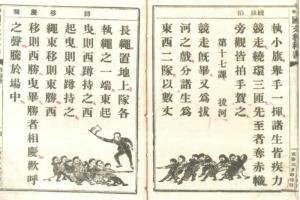 執小旗舉手一揮諸生皆疾力
競走繞環三匝先至者奪赤幟
旁觀皆拍手賀之
第十七課 拔河
競走既畢又為拔
河之戲分諸生為
東西二隊以數丈
長繩置地上隊各
執繩之一端東起
曳則西蹲持之西
起曳則東蹲持之
繩東移則東勝西
移則西勝曳畢勝者相慶歡呼
之聲騰於場中